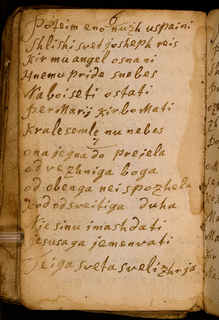 6
Poteim eno nuzh uspaini
Shlishi svet josheph reis
kir mu angel osnani
Hnemu pride snebes
Naboiseti ostati
per Marij kir bo Mati
kralesemle nu nebes
7
ona jegnado prejela
od vezhniga boga
od obenga nei spozhela
kod od sveitiga duha
Tje sinu imashdati
jesusaga jemenvati